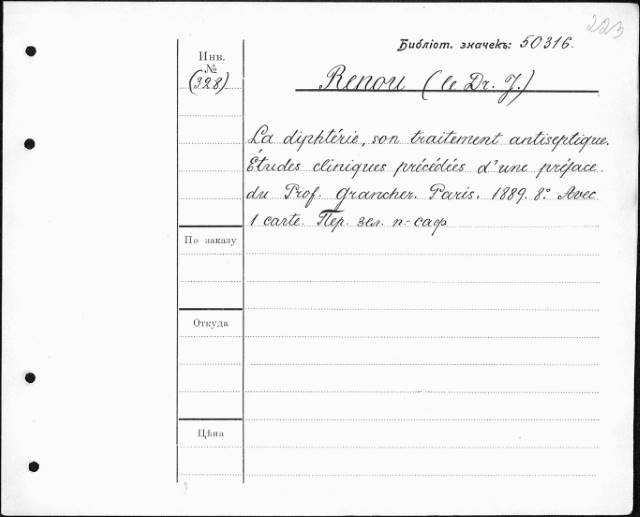 223
Библіот. значекъ: 50316.
Инв.
№
(328)
Renou (le Dr. J.)
La diphtérie, son traitement antiseptique.
Études cliniques précédées d'une préface
du Prof. Grancher. Paris. 1889. 8° Avec
1 carte. Пер. зел. п-саф
По заказу
Откуда
Цѣна